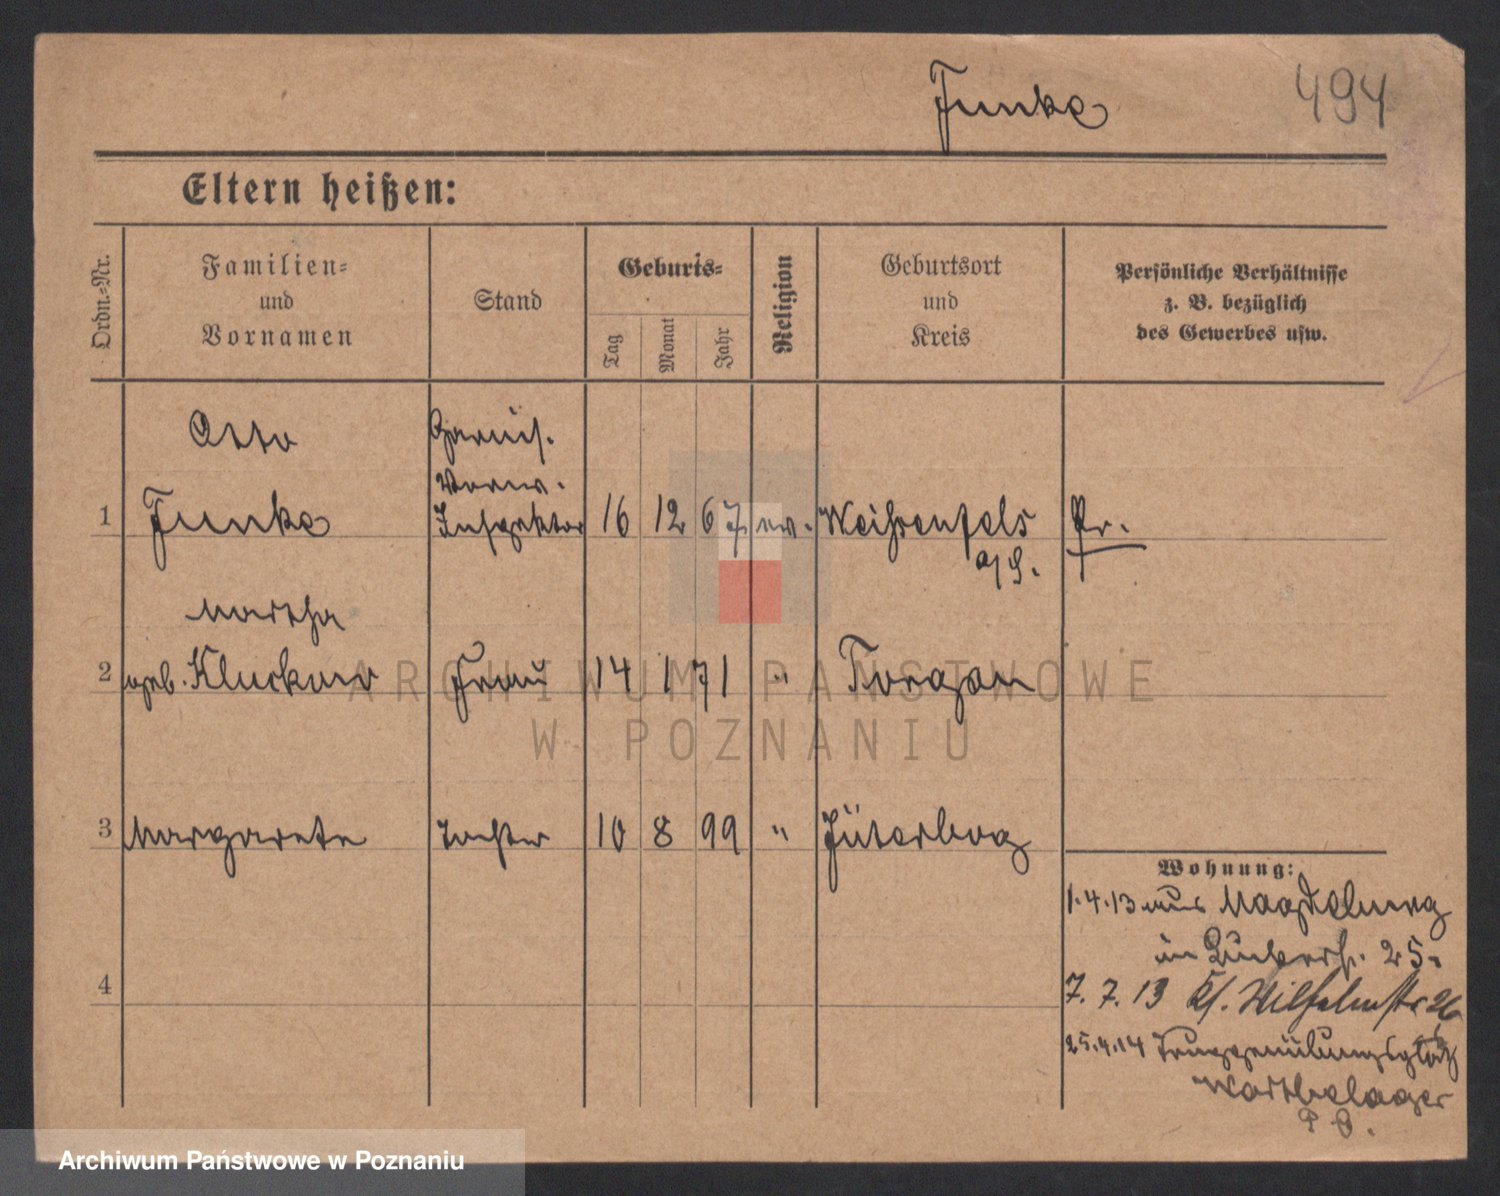 Funke
494
Eltern heißen:
Ordn.-Nr.
Familien-
und
Vornamen
Stand
Geburts-
Tag
Monat
Jahr
Religion
Geburtsort
und
Kreis
Persönliche Verhältnisse
z. B. bezüglich
des Gewerbes usw.
Otto
Garnis.
Verw.
1 Funke Inspektor 16 12 67 ev. Weißenfels Pr.
a/S.
Martha
2 geb. Kluckow Frau 14 1 71 " Torgau
3 Margarete Tochter 10 8 99 " Jüterbog
Wohnung:
1.4.13 aus Magdeburg
in 25.
4
7.7.13 Kl. Wilhelmstr. 26
25.4.14 Truppenübungsplatz
Warthelager
ARCHIWUM PAŃSTWOWE
W POZNANIU
Archiwum Państwowe w Poznaniu